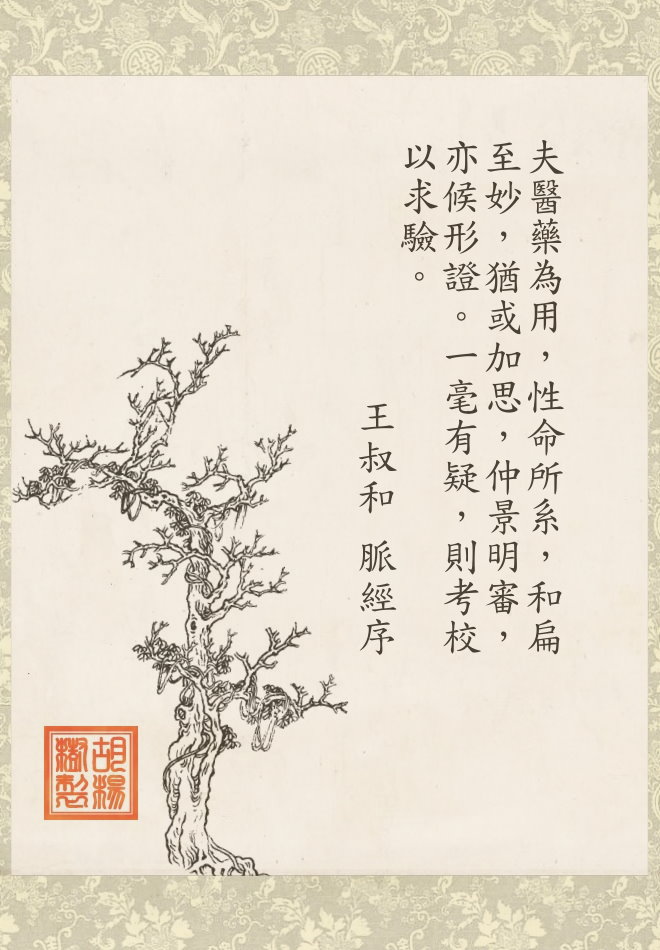 夫醫藥為用，性命所系，和扁
至妙，猶或加思，仲景明審，
亦候形證。一毫有疑，則考校
以求驗。
王叔和 脈經序
胡楊
樹製